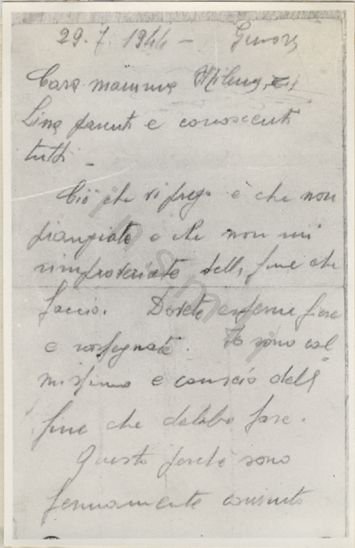 29.7.1944 - Genova
Cara mamma Milena, e
Lina parenti e conoscenti
tutti -
Ciò che vi prego è che non
piangiate e che non mi
rimproveriate della fine che
faccio. Dovete esserne fiere
e rassegnate. Io sono cal
missimo e conscio della
fine che debbo fare.
Questo perché sono
fermamente convinto